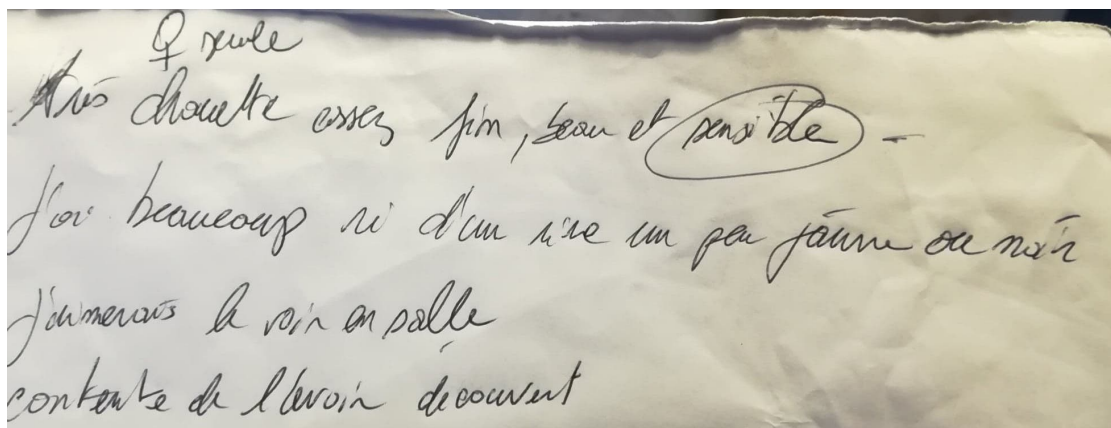 ♀ seule
très chouette assez fin, beau et sensible -
j'ai beaucoup ri d'un rire un peu jaune ou noir
j'aimerais le voir en salle
contente de l'avoir découvert